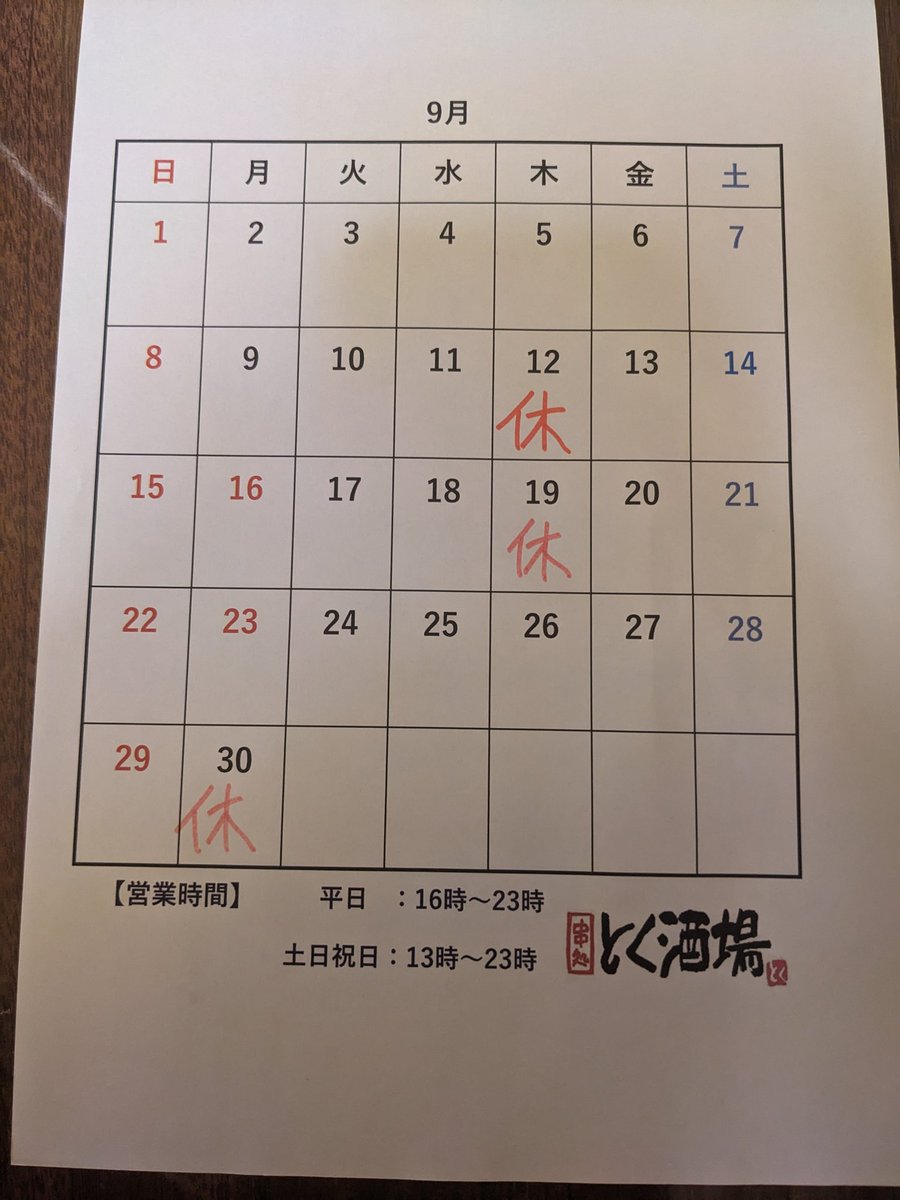 9月
日 月 火 水 木 金 土
1 2 3 4 5 6 7
8 9 10 11 12 13 14
休
15 16 17 18 19 20 21
休
22 23 24 25 26 27 28
29 30
休
【営業時間】 平日 ：16時～23時
土日祝日：13時～23時
串処 とく酒場 とく